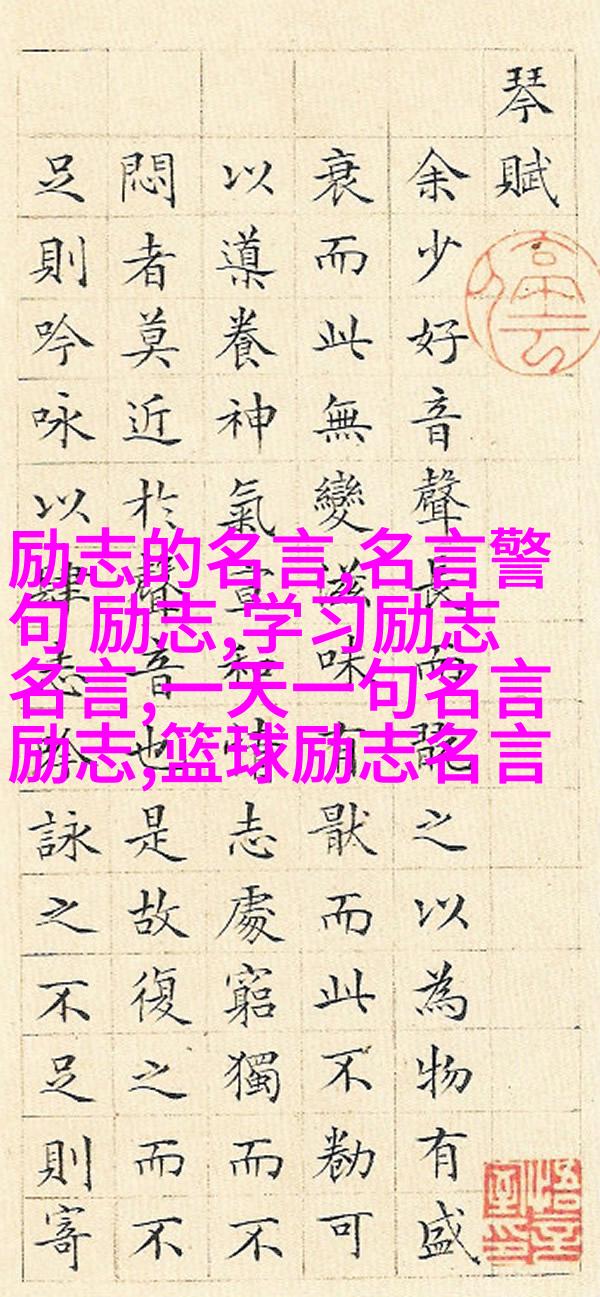 琴賦
余少好音聲長而翫之以為物有盛
衰而此無變滋味有猒而此不勌可
以導養神氣宣和情志處窮獨而不
悶者莫近於聲音也是故復之而不
足則吟咏以肆志吟詠之不足則寄
励志的名言,名言警
句 励志,学习励志
名言,一天一句名言
励志,篮球励志名言